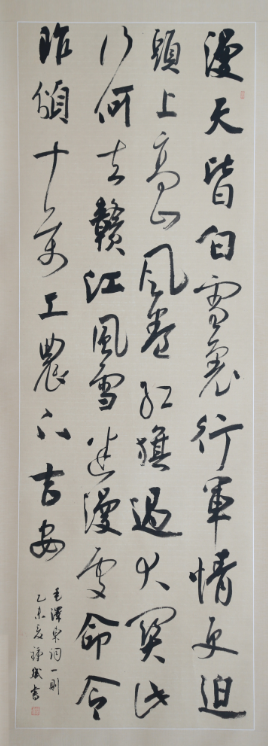 漫天皆白雪裏行軍情更迫
頭上高山風卷紅旗過大關此
行何去贛江風雪迷漫處命令
昨頒十万工農下吉安
毛澤東詞一則
乙未夏書